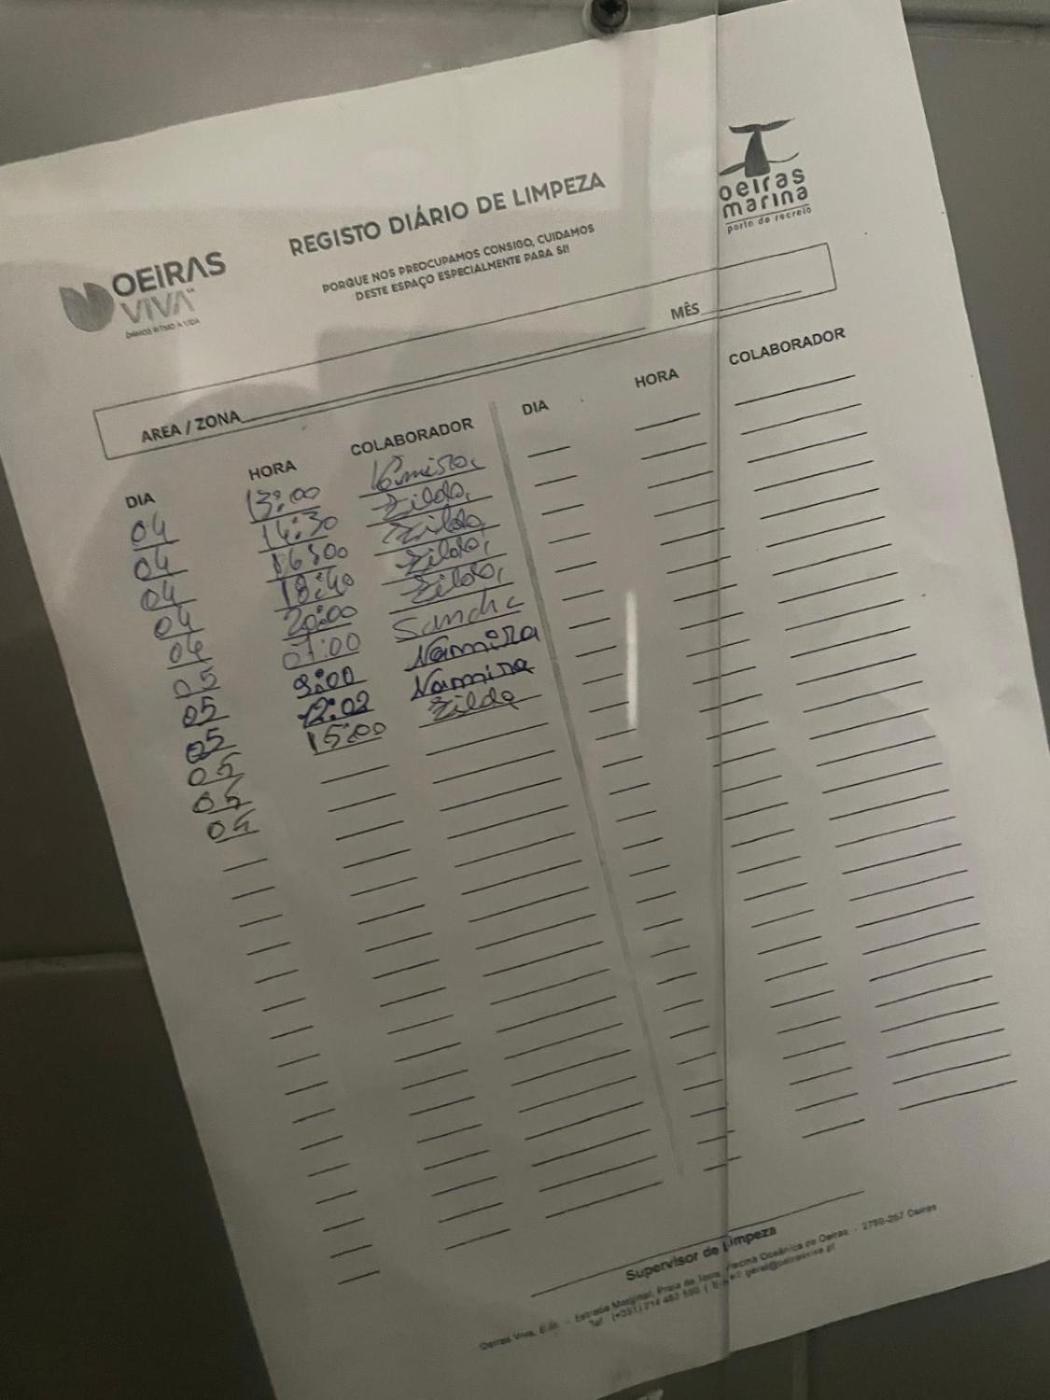 OEIRAS
VIVA
DAMOS RITMO À VIDA
REGISTO DIÁRIO DE LIMPEZA
PORQUE NOS PREOCUPAMOS CONSIGO, CUIDAMOS
DESTE ESPAÇO ESPECIALMENTE PARA SI!
oeiras
marina
porto de recreio
AREA / ZONA MÊS
DIA HORA COLABORADOR DIA HORA COLABORADOR
04 13:00
04 14:30 Zilda
04 16:00 Zilda
04 18:40 Zilda
04 20:00 Zilda
05 07:00 Sandra
05 9:00 Namira
05 12:02 Namira
05 15:00 Zilda
05
04
Supervisor de Limpeza
Oeiras Viva, E.M. - Estrada Marginal, Praia da Torre, Piscina Oceânica de Oeiras - 2780-267 Oeiras